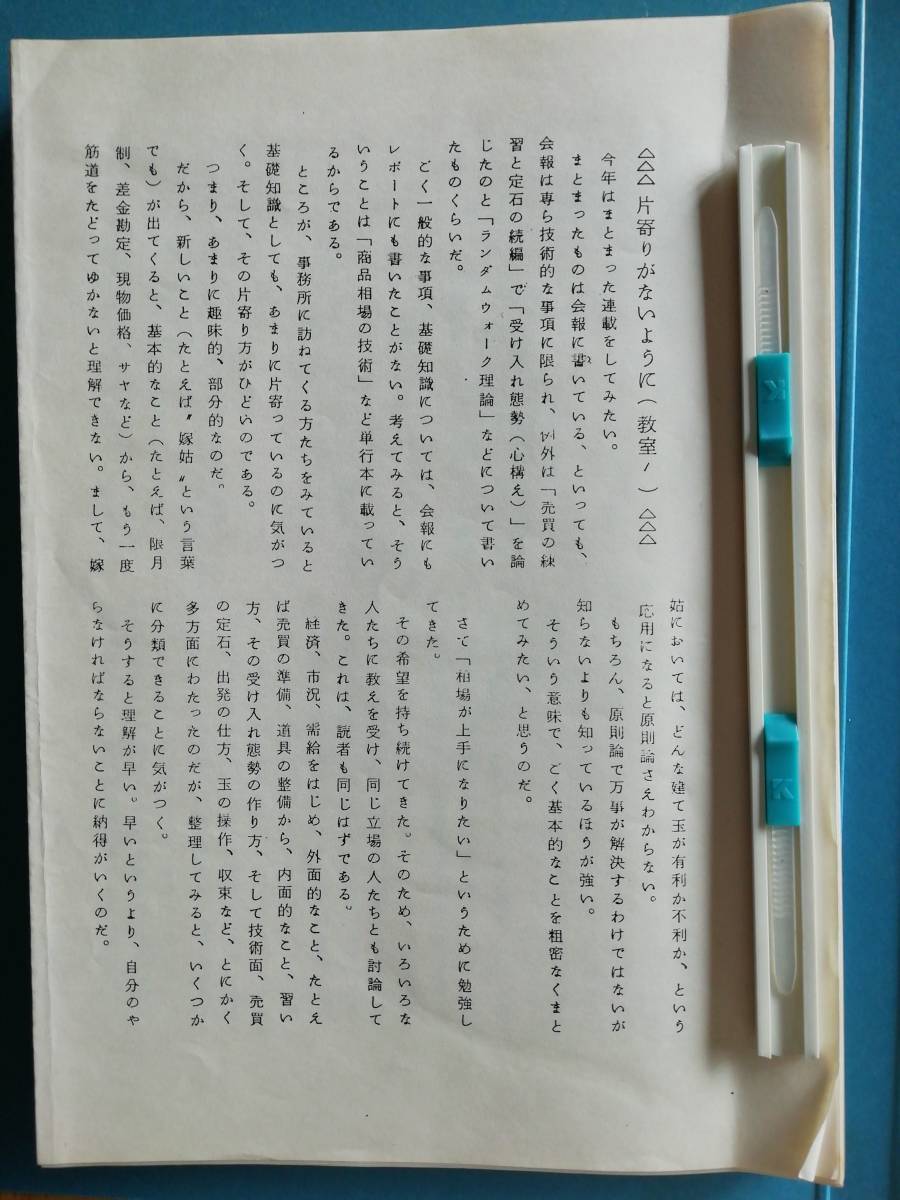 △△△ 片寄りがないように（教室ノ）△△△
今年はまとまった連載をしてみたい。
まとまったものは会報に書いている、といっても、
会報は専ら技術的な事項に限られ、例外は「売買の練
習と定石の続編」で「受け入れ態勢（心構え）」を論
じたのと「ランダムウォーク理論」などについて書い
たものくらいだ。
ごく一般的な事項、基礎知識については、会報にも
レポートにも書いたことがない。考えてみると、そう
いうことは「商品相場の技術」など単行本に載ってい
るからである。
ところが、事務所に訪ねてくる方たちをみていると
基礎知識としても、あまりに片寄っているのに気がつ
く。そして、その片寄り方がひどいのである。
つまり、あまりに趣味的、部分的なのだ。
だから、新しいこと（たとえば〝嫁姑〟という言葉
でも）が出てくると、基本的なこと（たとえば、限月
制、差金勘定、現物価格、サヤなど）から、もう一度
筋道をたどってゆかないと理解できない。まして、嫁
姑においては、どんな建て玉が有利か不利か、という
応用になると原則論さえわからない。
もちろん、原則論で万事が解決するわけではないが
知らないよりも知っているほうが強い。
そういう意味で、ごく基本的なことを粗密なくまと
めてみたい、と思うのだ。
さて「相場が上手になりたい」というために勉強し
てきた。
その希望を持ち続けてきた。そのため、いろいろな
人たちに教えを受け、同じ立場の人たちとも討論して
きた。これは、読者も同じはずである。
経済、市況、需給をはじめ、外面的なこと、たとえ
ば売買の準備、道具の整備から、内面的なこと、習い
方、その受け入れ態勢の作り方、そして技術面、売買
の定石、出発の仕方、玉の操作、収束など、とにかく
多方面にわたったのだが、整理してみると、いくつか
に分類できることに気がつく。
そうすると理解が早い。早いというより、自分のや
らなければならないことに納得がいくのだ。
K
K